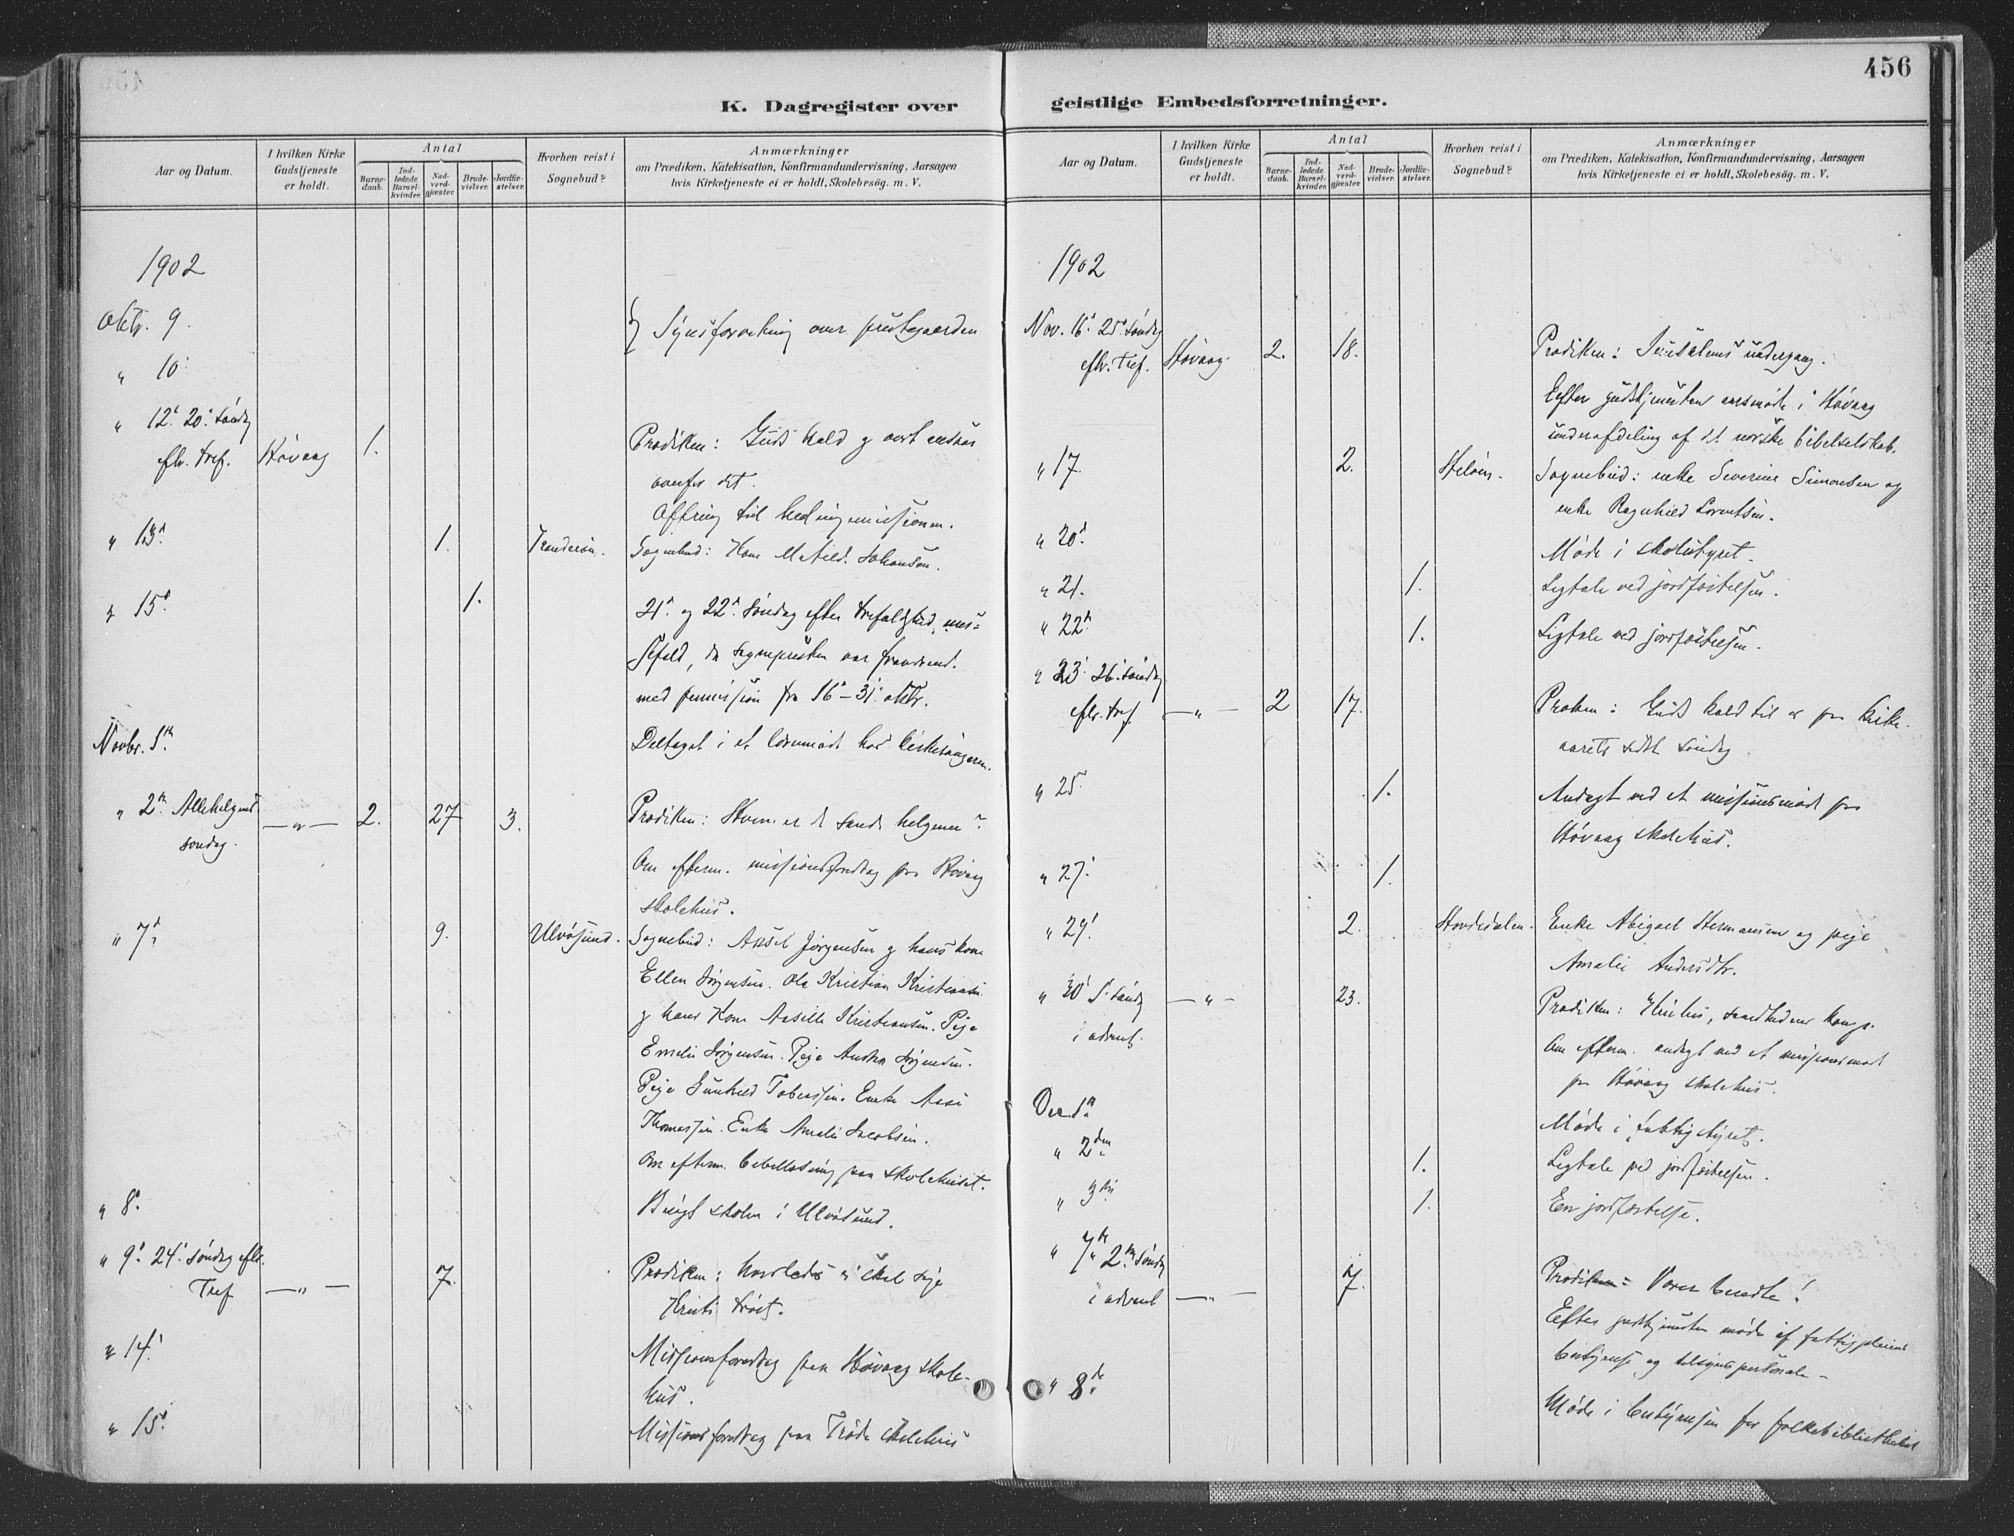 456
K. Dagregister over geistlige Embedsforretninger.
Aar og Datum.
I hvilken Kirke Gudstjeneste er holdt.
Antal
Barnedaab.
Indledede Barselkvinder.
Nadverdgjæster.
Brudevielser.
Jordfæstelser.
Hvorhen reist i Sognebud?
Anmærkninger
om Prædiken, Katekisation, Konfirmandundervisning, Aarsagen
hvis Kirketjeneste ei er holdt, Skolebesøg. m. V.
1902
Oktr. 9. } Synsforretning over prestegaarden
" 10.
" 12. 20. Søndag
eftr. Tref. Høvaag 1. Prædiken: Guds kald og vort ansvar
overfor det.
Ofring til hedningemissionen.
" 13. 1. Sognebud: Kone Matild. Johansen.
" 15. 1. 21. og 22. Søndag efter trefoldighed mes=
sefald, da sognepresten var fraværend.
med permission fra 16 – 31. oktr.
Novbr. 1. Deltaget i et læremøde hos kirkesangeren.
" 2. Allehelgens
søndag. — " — 2. 27 3. Prædiken: Hvem er de sande helgener?
Om efterm. missionsforedrag paa Høvaag
skolehus.
" 7. 9. Ulvøsund. Sognebud: Aksel Jørgensen og hans kone
Ellen Jørgensen. Ole Kristian Kristiansen
og hans Kone Kristiansen. Pige
Emelie Jørgensen. Pige Andrea Jørgensen.
Pige Gunhild Tobiassen. Enke
Thomassen. Enke Amalie Jacobsen.
Om efterm. bibellæsning paa skolehuset.
" 8. Besøgt skolen i Ulvøsund.
" 9. 24. søndag eftr.
Tref — " — 7. Prædiken: Hvorledes vi skal eje
Kristi trøst.
" 14. Missionsforedrag paa Høvaag skole-
hus.
" 15. Missionsforedrag paa skolehus
Aar og Datum.
I hvilken Kirke Gudstjeneste er holdt.
Antal
Barnedaab.
Indledede Barselkvinder.
Nadverdgjæster.
Brudevielser.
Jordfæstelser.
Hvorhen reist i Sognebud?
Anmærkninger
om Prædiken, Katekisation, Konfirmandundervisning, Aarsagen
hvis Kirketjeneste ei er holdt, Skolebesøg. m. V.
1902
Nov. 16. 25. Søndag
eftr. Tref. Høvaag. 2. 18. Prædiken: Jerusalems undergang.
Efter gudstjenesten aarsmøde i Høvaag
underafdeling af det norske bibelselskab.
" 17. 2. Sognebud: enke Severine Simonsen og
enke Ragnhild Lorentsen.
" 20. Møde i skolestyret.
" 21. 1. Ligtale ved jordfæstelsen.
" 22. 1. Ligtale ved jordfæstelsen.
" 23. 26. søndag
eftr. tref — " — 2 17. Præken: Guds kald til os paa kirke-
aarets sidste søndag.
" 25. 1. Andagt ved et missionsmøde paa
Høvaag skolehus.
" 27. 1.
" 29. 2. Hovdedalen. Enke Abigael Hermansen og pige
Amalie Andersdtr.
" 30. 1. søndag
i advent. — " — 23. Prædiken: Kristus, sandhedens konge.
Om efterm. andagt ved et missionsmøde
paa Høvaag skolehus.
Dec. 1. Møde i fattigstyret.
" 2den 1. Ligtale ved jordfæstelsen.
" 3die 1. En jordfæstelse.
" 7. 2. søndag
i advent — " — 7. Prædiken: Vores!
Efter gudstjenesten møde af fattigpleiens
bestyrelse og tilsynspersonale –
" 8. Møde i bestyrelsen for folkebibliotheket